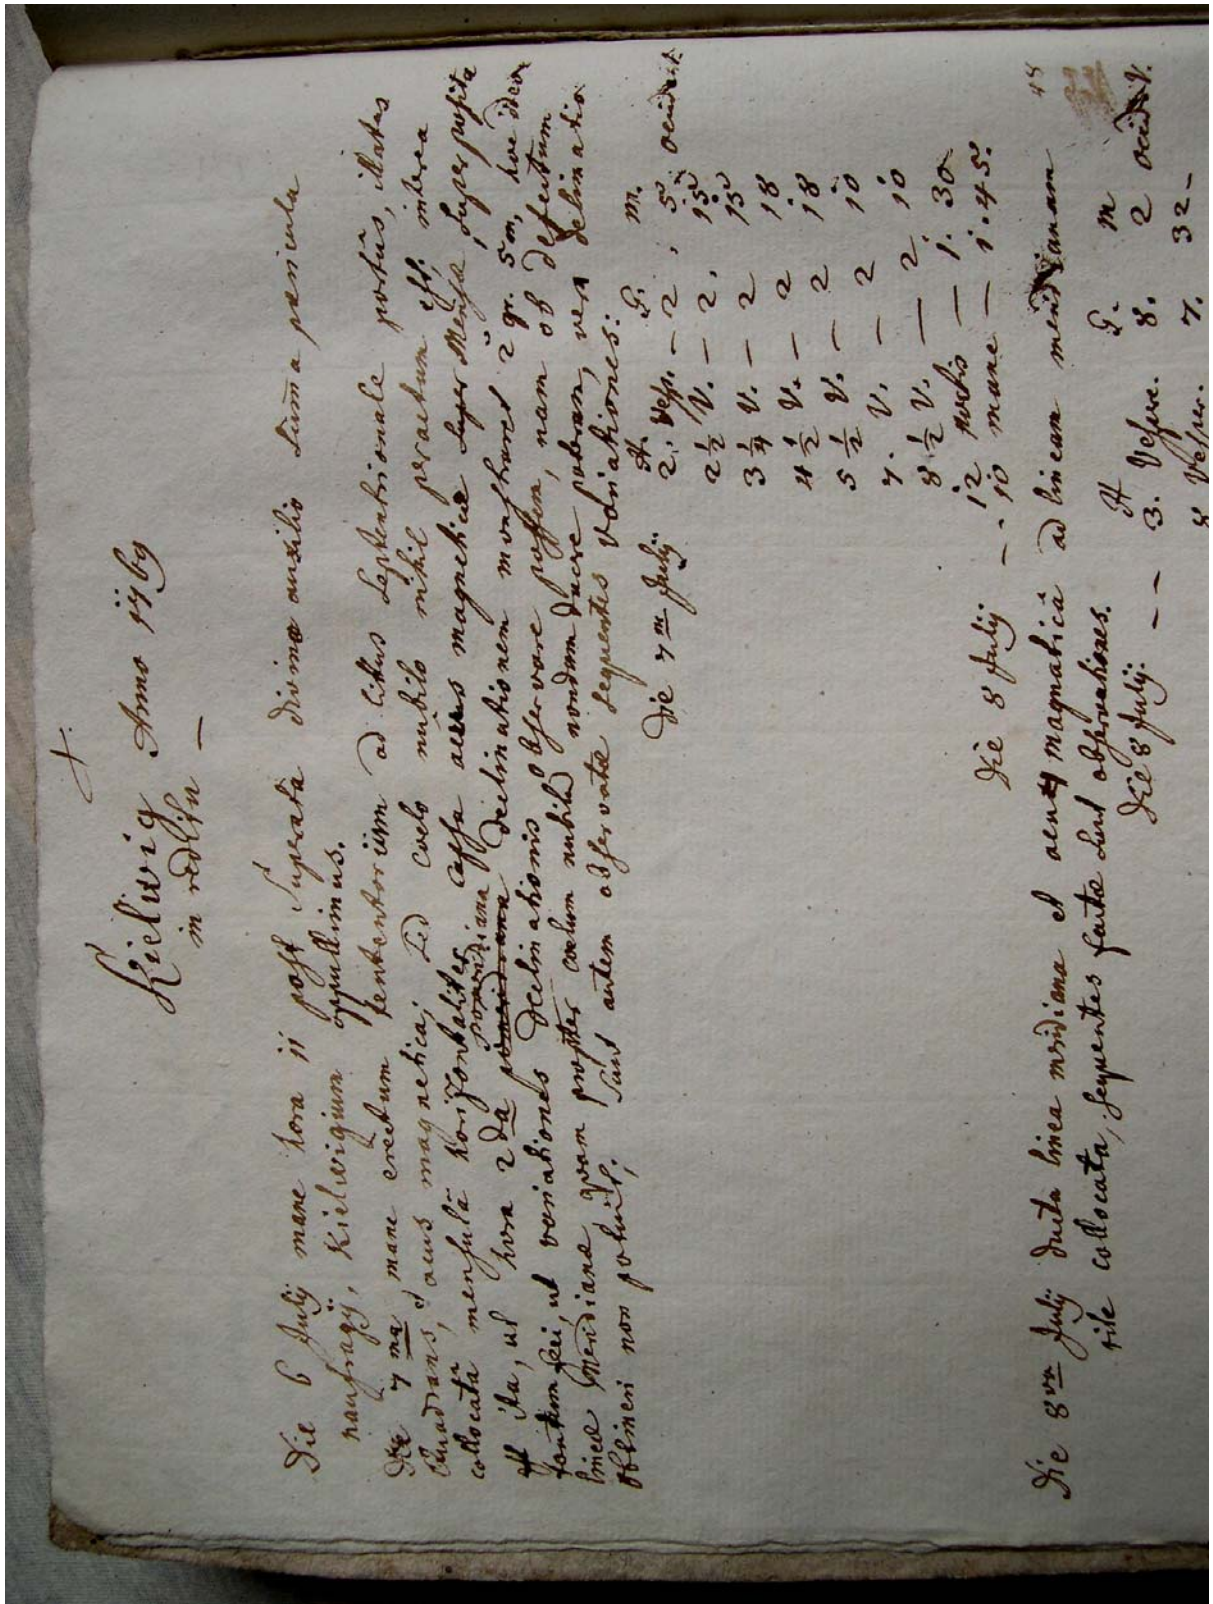 +.
Kielwig Anno 1769
in reditu —
Die 6 Julij mane hora 11 post Superata divino auxilio summa pericula
naufragij, Kielwigium appulimus.
Die 7 ma mane erectum tentorium ad litus Septentrionale portus, status
Quadrans, et acus magnetica; sed coelo nubilo nihil peractum est. interea
collocata mensula horizontaliter capsa acus magneticae super mensa, superposita
ita, ut hora 2 da pomeridiana declinationem monstraret 2 gr. 5 m, hoc ideo
feci, ut variationes declinationis observare possem, nam ob defectum
lineae meridianae quam propter coelum nubilum nondum ducere potram, vera declinatio
obtineri non potuit; Sunt autem observatae sequentes Variationes:
H. G. m.
Die 7 m Julij 2. Vesp. — 2 , 5 occident.
2 1/2 V. — 2, 15
3 1/4 V. — 2 15
4 1/2 V. — 2 18
5 1/2 V. — 2 18
7. V. — 2 10
8 1/2 V. — 2. 10
Die 8 Julij — - 12 noctis — 1. 30
10 mane — 1. 45.
48
Die 8 va Julij ducta linea meridiana et acu magnetica ad lineam meridianam
rite collocata, sequentes factae sunt observationes.
H G. m
Die 8 Julij. — — 3. Vespe. 8. 2 occid. V.
8 Vesper. 7. 32 -